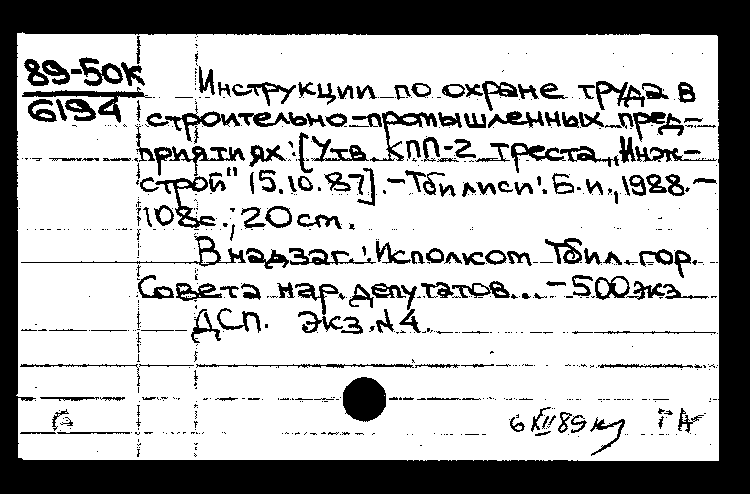 89-50К
6194
Инструкции по охране труда в
строительно-промышленных пред-
приятиях: [Утв. КПП-2 треста „Инж-
строй" 15.10.87]. - Тбилиси: Б.и., 1988. -
108с.; 20 cm.
В надзаг.: Исполком Тбил. гор.
Совета нар. депутатов... - 500экз
ДСП. Экз. N4.
6 XII 89 ГА